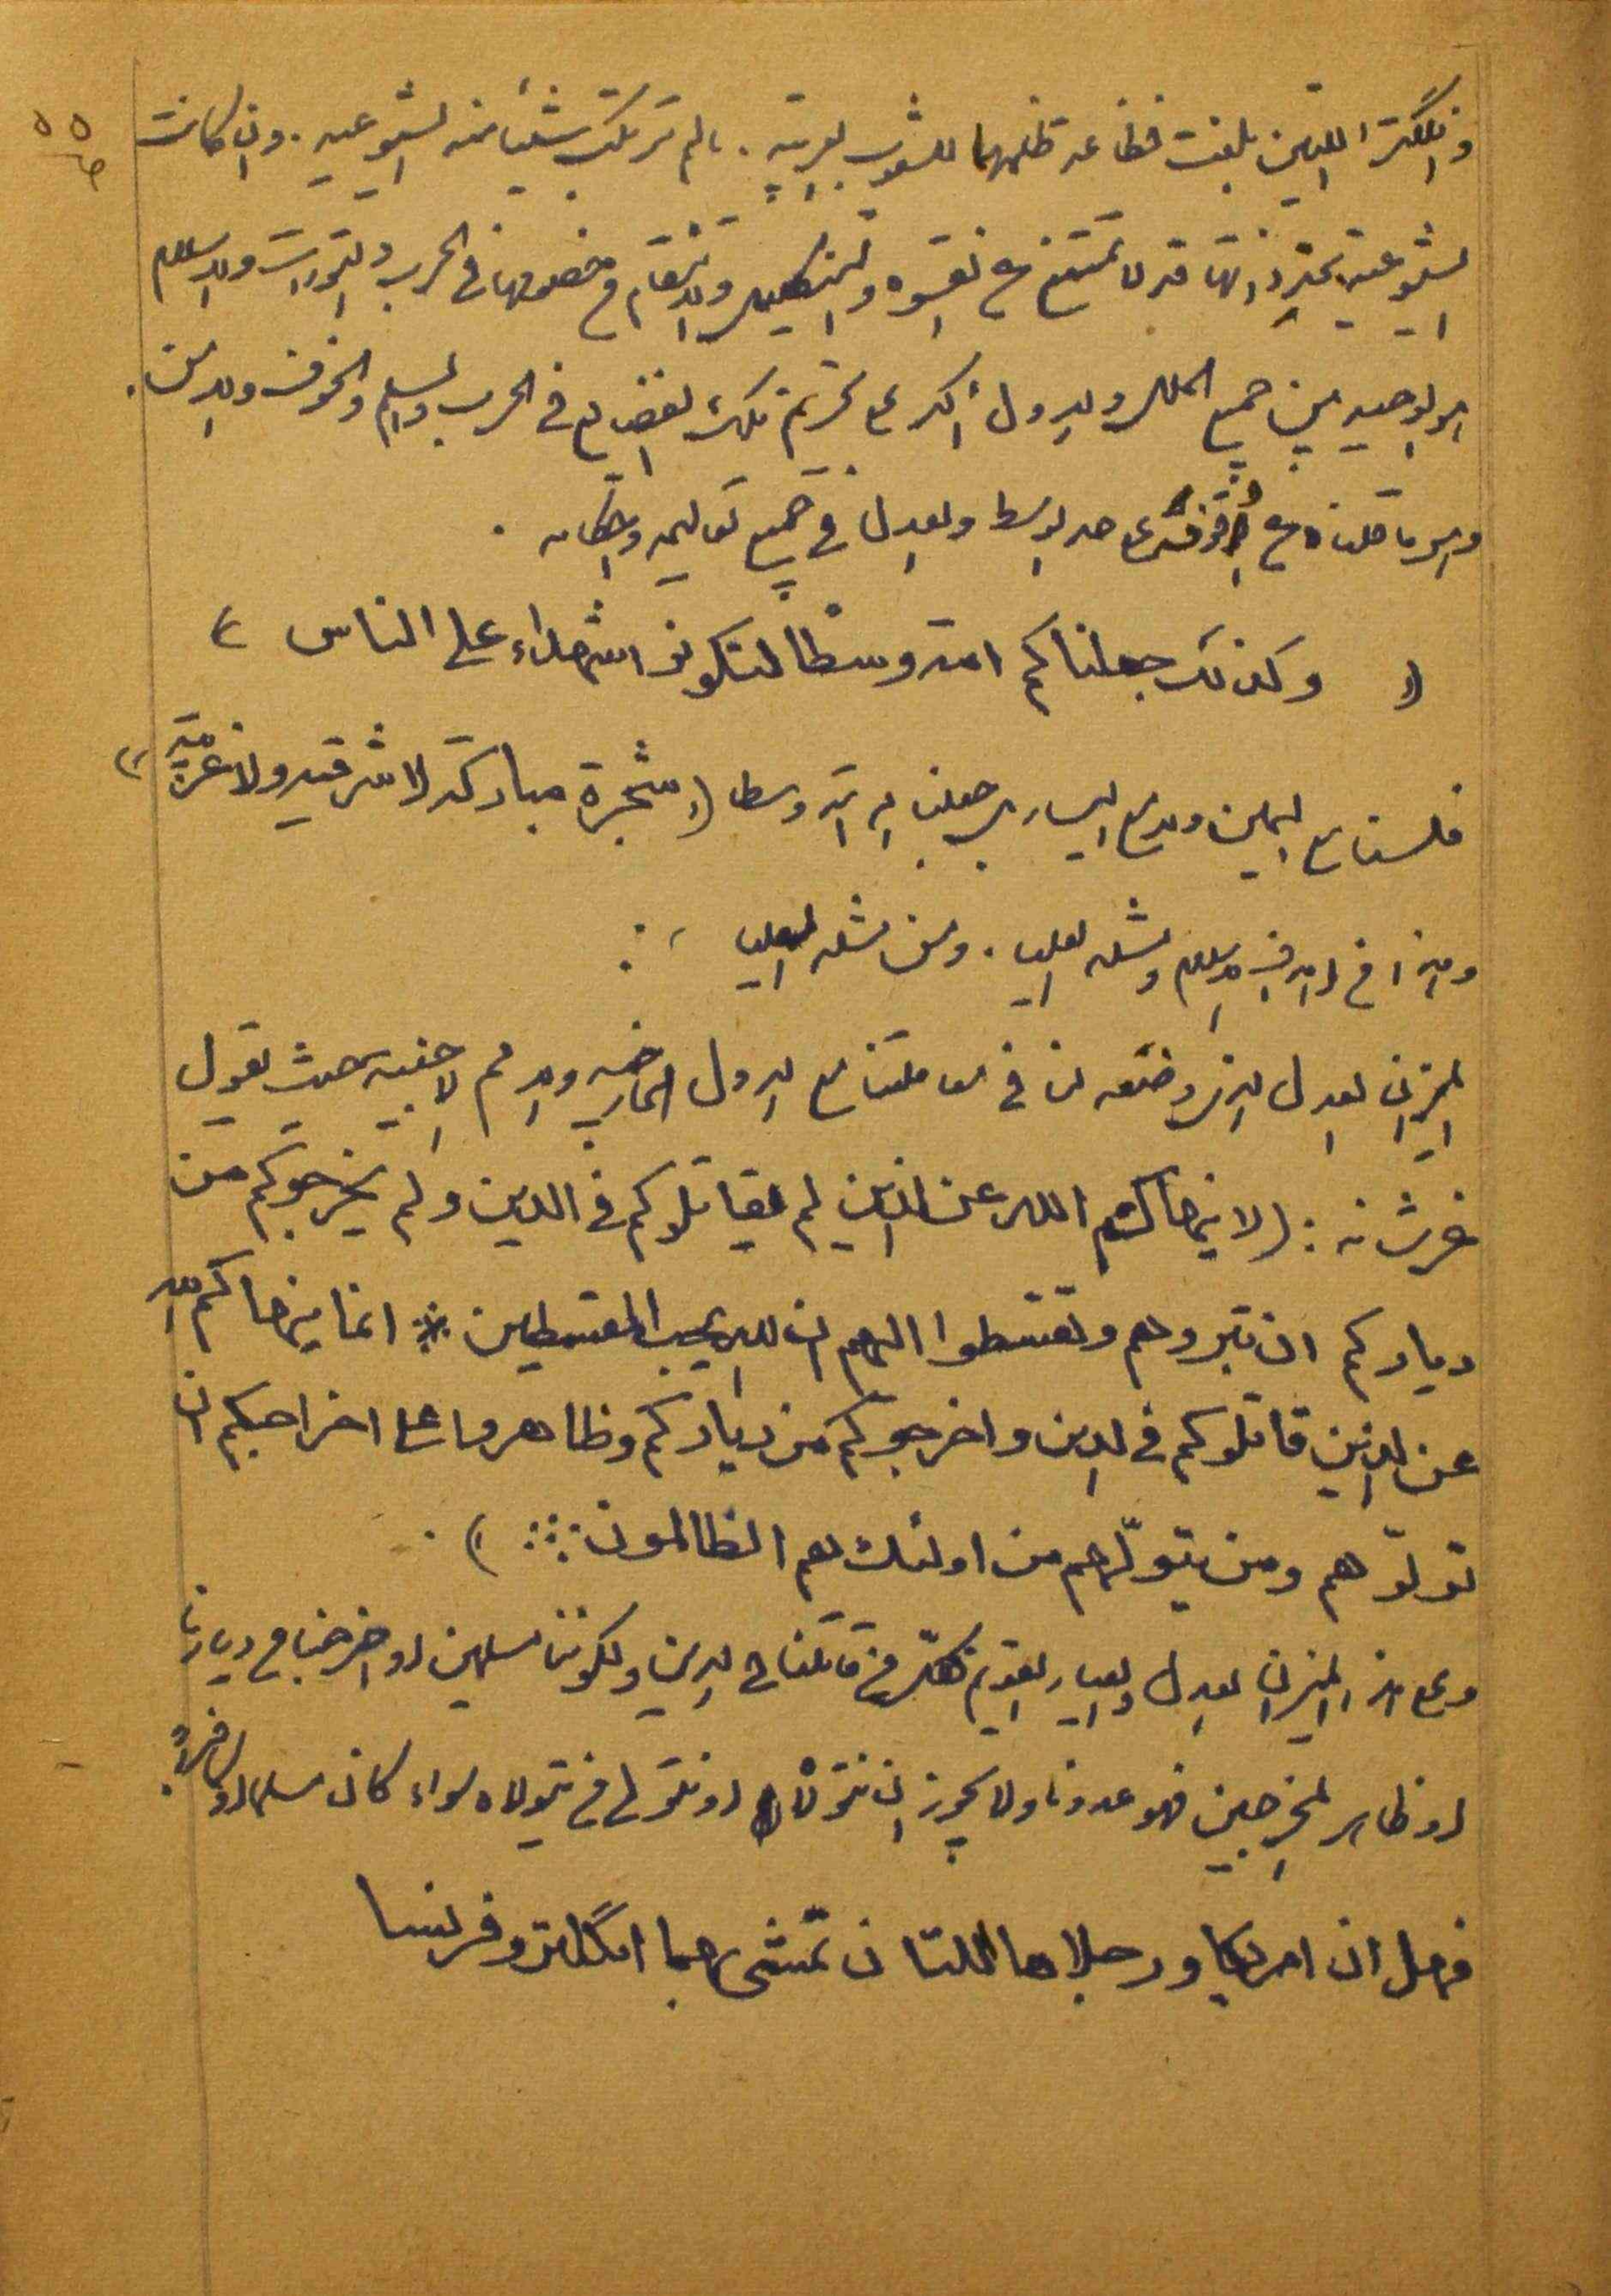 ٥٥
وانگلترا اللتين بلغت فظاعة ظلمهما للشعوب العربية . ما لم ترتكب شيئا منه الشيوعية . وان كانت
الشيوعية بحد ذاتها قد لا تمتنع من القسوة والتنكيل والانتقام من خصومها في الحرب والثورات والاسلام
هو الوحيد من جميع الملل والدول أكد على تحريم تلك الفضايع في الحرب والسلم والخوف والامن .
وهو ما قلناه من على حد الوسط والعدل في جميع تعاليمه واحكامه .
(( وكذلك جعلناكم امة وسطا لتكونوا شهداء على الناس ))
فلسنا مع اليمين ولا مع اليسار بل جعلنا الله امة وسطا (( شجرة مباركة لا شرقية ولا غربية ))
وهذا من اهداف الاسلام ومثله العليا . ومن مثله العليا :
الميزان العدل الذي وضعه لنا في معاملتنا مع الدول الخارجية والامم الاجنبية حيث يقول
عز شانه : (لا ينهاكم الله عن الذين لم يقاتلوكم في الدين ولم يخرجوكم من
دياركم ان تبروهم وتقسطوا اليهم ان الله يحب المقسطين * انما ينهاكم الله
عن الذين قاتلوكم في الدين واخرجوكم من دياركم وظاهروا على اخراجكم ان
تولّوهم ومن يتولّهم من اولئك هم الظالمون ∴ ) .
وعلى هذا الميزان العدل والعيار القويم فكل من قاتلنا في الدين ولكوننا مسلمين او اخرجنا من ديارنا
او ظاهر المخرجين فهو عدونا ولا يجوز ان نتولاه او نتولى من يتولاه سواء كان مسلما او كافراً .
فهل ان امريكا ورجلاها اللتان تمشي بهما انگلترا وفرنسا